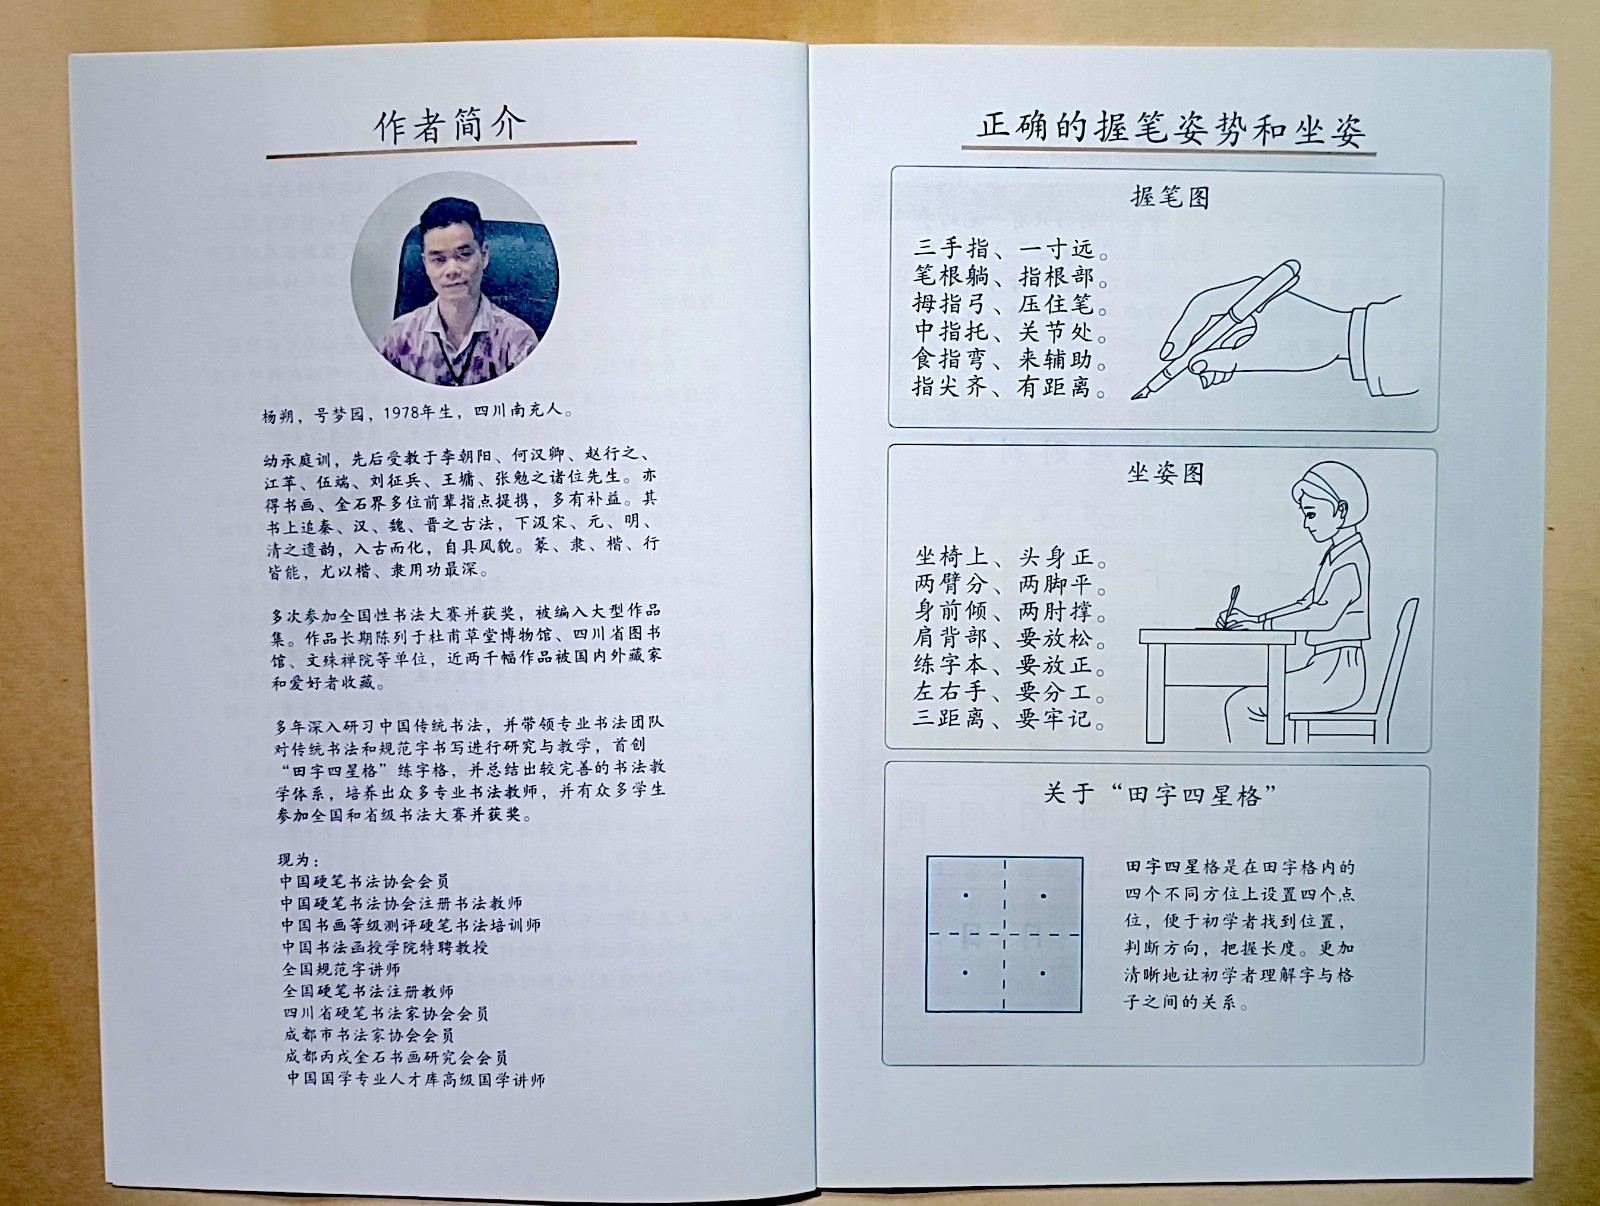 作者简介
杨朔，号梦园，1978年生，四川南充人。
幼承庭训，先后受教于李朝阳、何汉卿、赵行之、
江苹、伍端、刘征兵、王墉、张勉之诸位先生。亦
得书画、金石界多位前辈指点提携，多有补益。其
书上追秦、汉、魏、晋之古法，下汲宋、元、明、
清之遗韵，入古而化，自具风貌。篆、隶、楷、行
皆能，尤以楷、隶用功最深。
多次参加全国性书法大赛并获奖，被编入大型作品
集。作品长期陈列于杜甫草堂博物馆、四川省图书
馆、文殊禅院等单位，近两千幅作品被国内外藏家
和爱好者收藏。
多年深入研习中国传统书法，并带领专业书法团队
对传统书法和规范字书写进行研究与教学，首创
“田字四星格”练字格，并总结出较完善的书法教
学体系，培养出众多专业书法教师，并有众多学生
参加全国和省级书法大赛并获奖。
现为：
中国硬笔书法协会会员
中国硬笔书法协会注册书法教师
中国书画等级测评硬笔书法培训师
中国书法函授学院特聘教授
全国规范字讲师
全国硬笔书法注册教师
四川省硬笔书法家协会会员
成都市书法家协会会员
成都丙戌金石书画研究会会员
中国国学专业人才库高级国学讲师
正确的握笔姿势和坐姿
握笔图
三手指、一寸远。
笔根躺、指根部。
拇指弓、压住笔。
中指托、关节处。
食指弯、来辅助。
指尖齐、有距离。
坐姿图
坐椅上、头身正。
两臂分、两脚平。
身前倾、两肘撑。
肩背部、要放松。
练字本、要放正。
左右手、要分工。
三距离、要牢记。
关于“田字四星格”
田字四星格是在田字格内的
四个不同方位上设置四个点
位，便于初学者找到位置，
判断方向，把握长度。更加
清晰地让初学者理解字与格
子之间的关系。